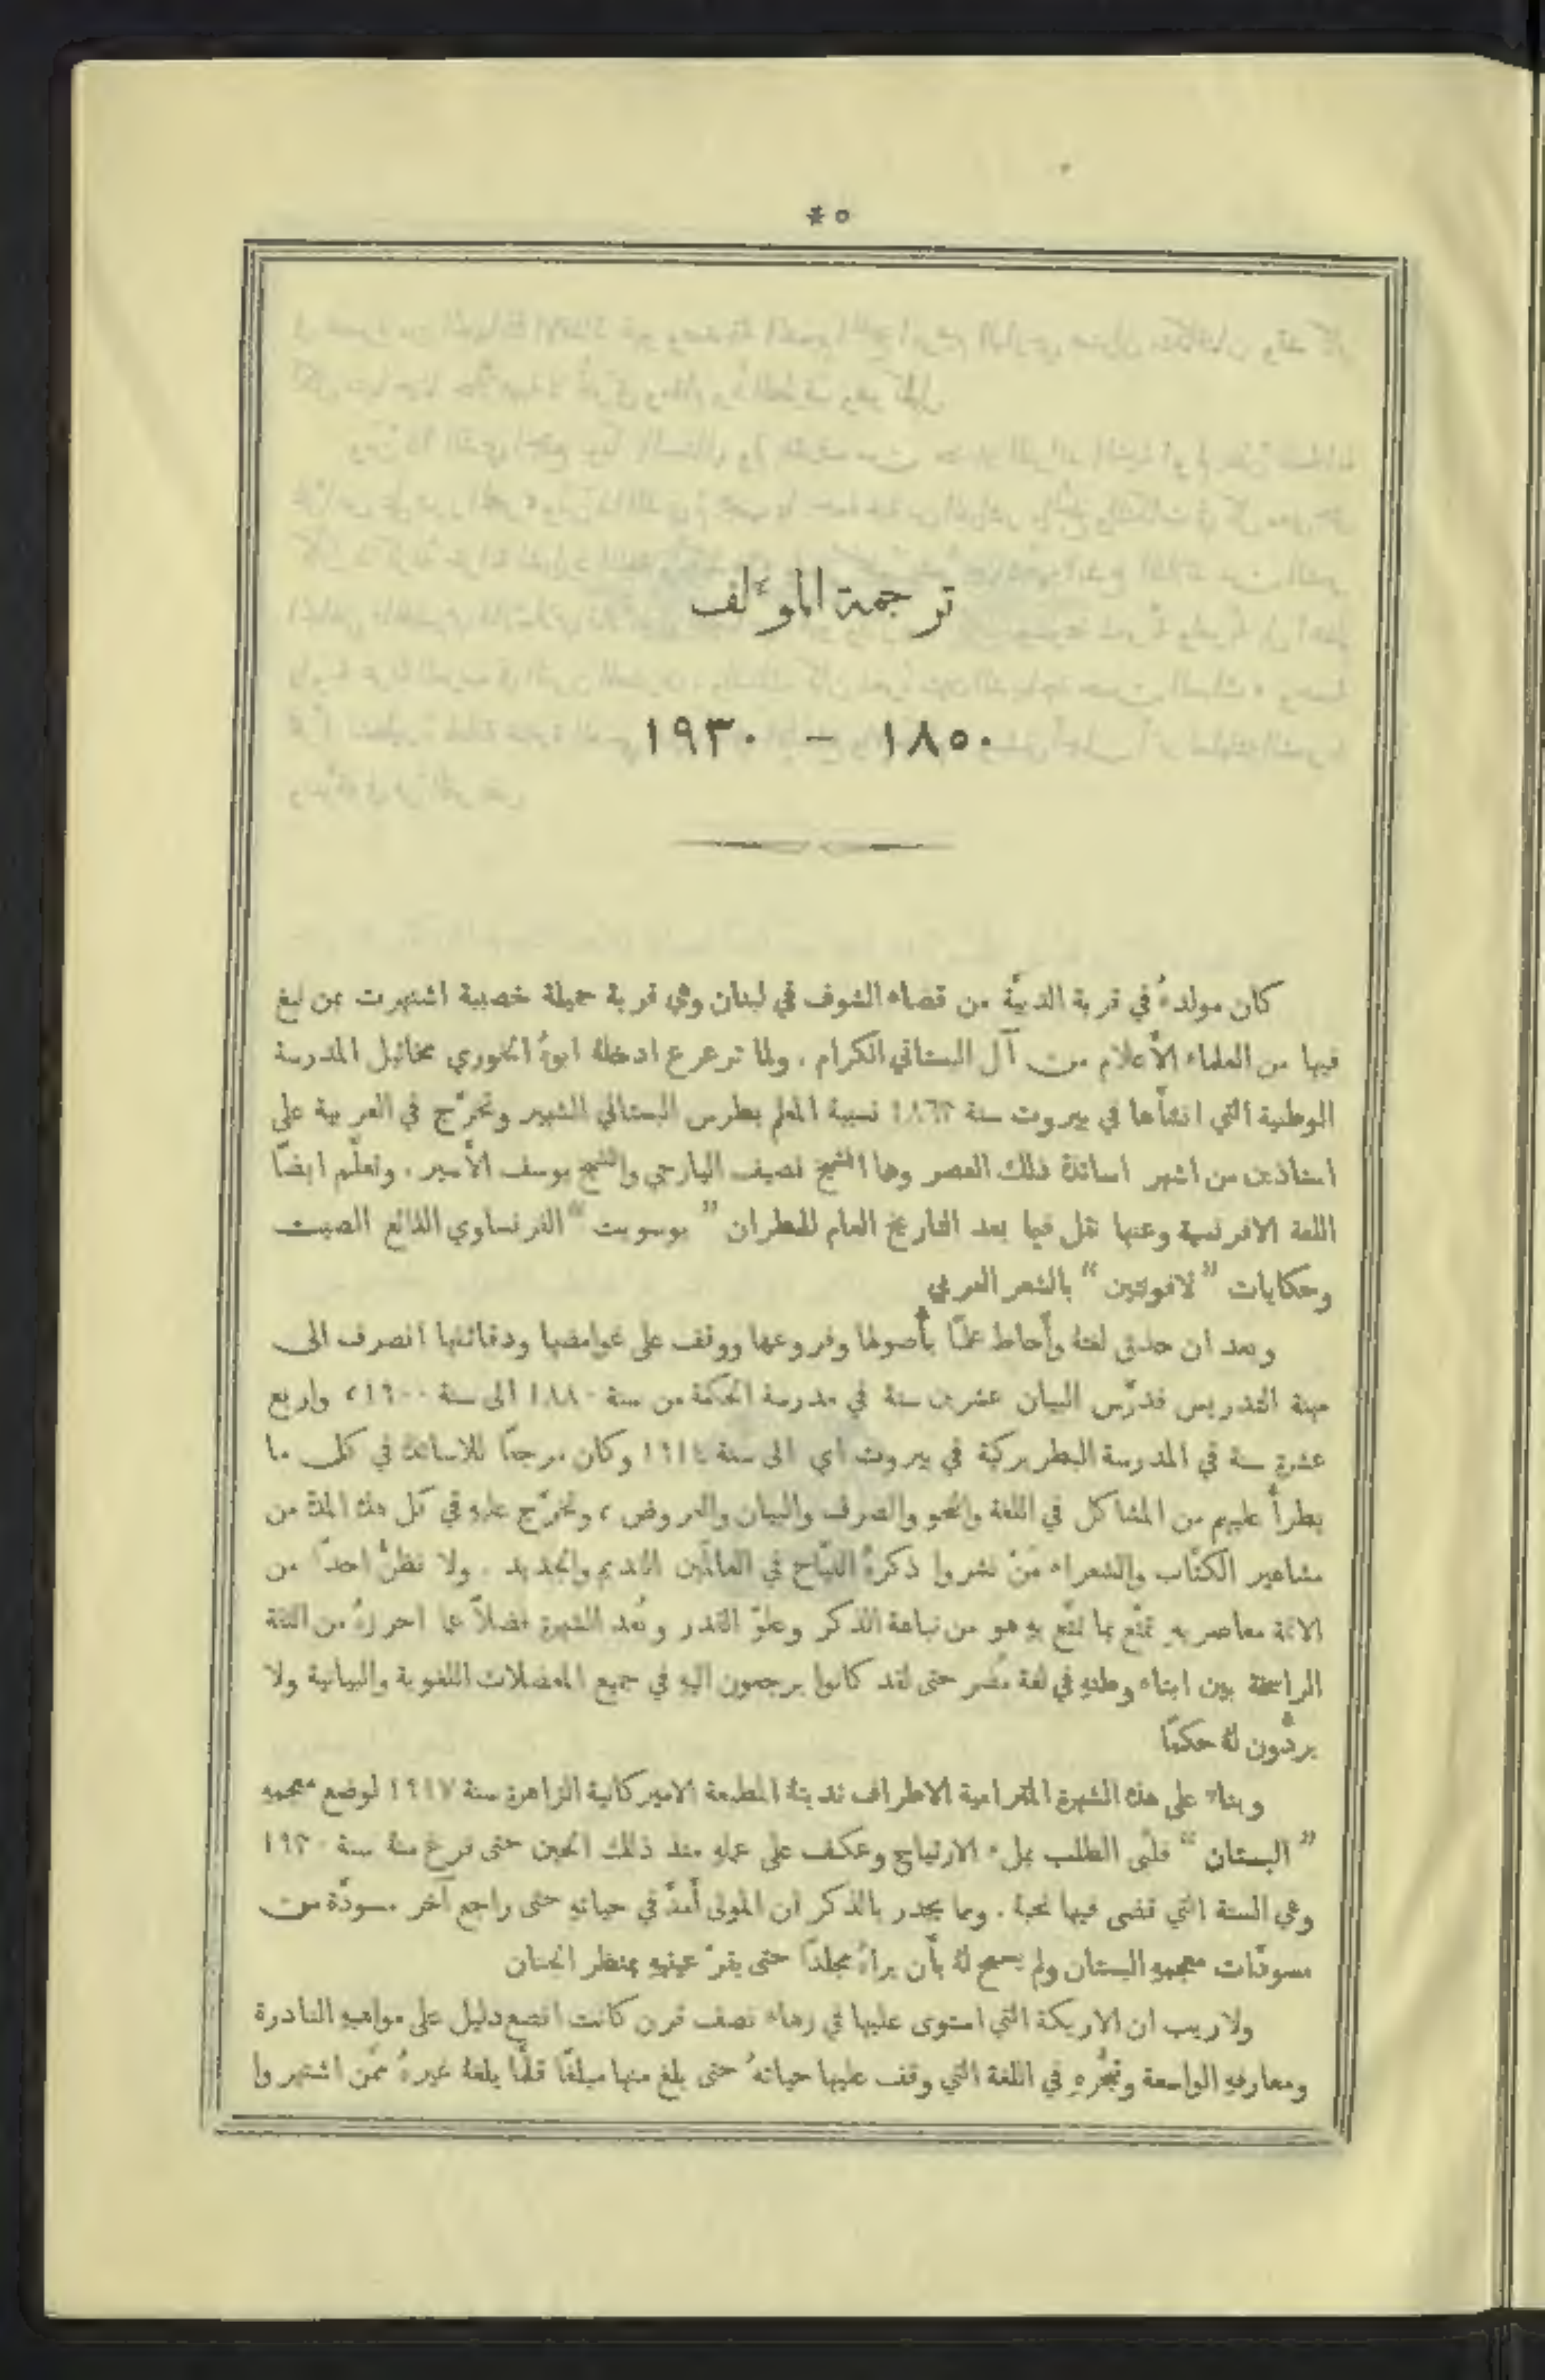 ٥ *
ترجمة المؤلف
١٨٥٠ – ١٩٣٠
كان مولدهُ في قرية الدبيَّة من قضاء الشوف في لبنان وهي قرية جميلة خصيبة اشتهرت بمن نبغ
فيها من العلماء الأعلام من آل البستاني الكرام . ولما ترعرع ادخلهُ ابوهُ الخوري مخائيل المدرسة
الوطنية التي انشأَها في بيروت سنة ١٨٦٣ نسيبهُ المعلم بطرس البستاني الشهير وتخرَّج في العربية على
استاذين من اشهر اساتذة ذلك العصر وهما الشيخ نصيف اليازجي والشيخ يوسف الأَسير . وتعلَّم ايضًا
اللغة الافرنسية وعنها نقل فيما بعد التاريخ العام للمطران ” بوسويت “ الفرنساوي الذائع الصيت
وحكايات ” لافونتين “ بالشعر العربي
وبعد ان حذق لغتهُ وأَحاط علمًا بأُصولها وفروعها ووقف على غوامضها ودقائقها انصرف الى
مهنة التدريس فدرَّس البيان عشرين سنة في مدرسة الحكمة من سنة ١٨٨٠ الى سنة ١٩٠٠ ، واربع
عشرة سنة في المدرسة البطريركيَّة في بيروت اي الى سنة ١٩١٤ وكان مرجعًا للاساتذة في كل ما
يطرأُ عليهم من المشاكل في اللغة والنحو والصرف والبيان والعروض ، وتخرَّج عليهِ في كل هذه المدة من
مشاهير الكتَّاب والشعراء مَنْ نشروا ذكرهُ الفيَّاح في العالَمَين القديم والجديد . ولا نظنُّ احدًا من
الائمة معاصريهِ تمتَّع بما تمتَّع بهِ هو من نباهة الذكر وعلوّ القدر وبُعد الشهرة فضلاً عما احرزهُ من الثقة
الراسخة بين ابناء وطنهِ في لغة مُضر حتى لقد كانوا يرجعون اليهِ في جميع المعضلات اللغوية والبيانية ولا
يردُّون لهُ حكمًا
وبناء على هذه الشهرة المترامية الاطراف ندبتهُ المطبعة الاميركانية الزاهرة سنة ١٩١٧ لوضع معجمهِ
” البستان “ فلبَّى الطلب بملء الارتياح وعكف على عملهِ منذ ذلك الحين حتى فرغ منهُ سنة ١٩٣٠
وهي السنة التي قضى فيها نحبهُ . ومما يجدر بالذكر ان المولى أَمدَّ في حياتهِ حتى راجع آخر مسودَّة من
مسودَّات معجمهِ البستان ولم يسمح لهُ بأَن يراهُ مجلدًا حتى يقرّ عينيهِ بمنظر الجنان
ولا ريب ان الاريكة التي استوى عليها في زهاء نصف قرن كانت انصع دليل على مواهبهِ النادرة
ومعارفهِ الواسعة وتبحُّرهِ في اللغة التي وقف عليها حياتهُ حتى بلغ منها مبلغًا قلَّما بلغهُ غيرهُ ممَّن اشتهروا